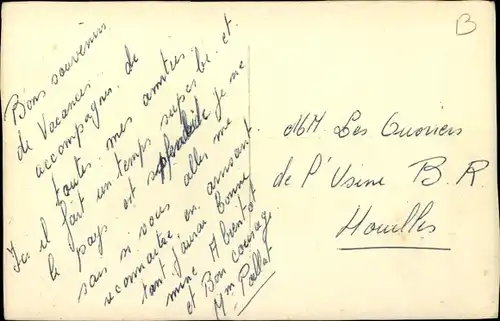 Bons souvenirs
de Vacances
accompagnés de
toutes mes amitiés
Ici il fait un temps superbe et
le pays est splendide je ne
sais si vous allez me
reconnaitre en arrivant
tant j'aurai bonne
mine A bientot
et Bon courage
Mm
MM. Les Ouvriers
de l'Usine B. R.
Houilles
B